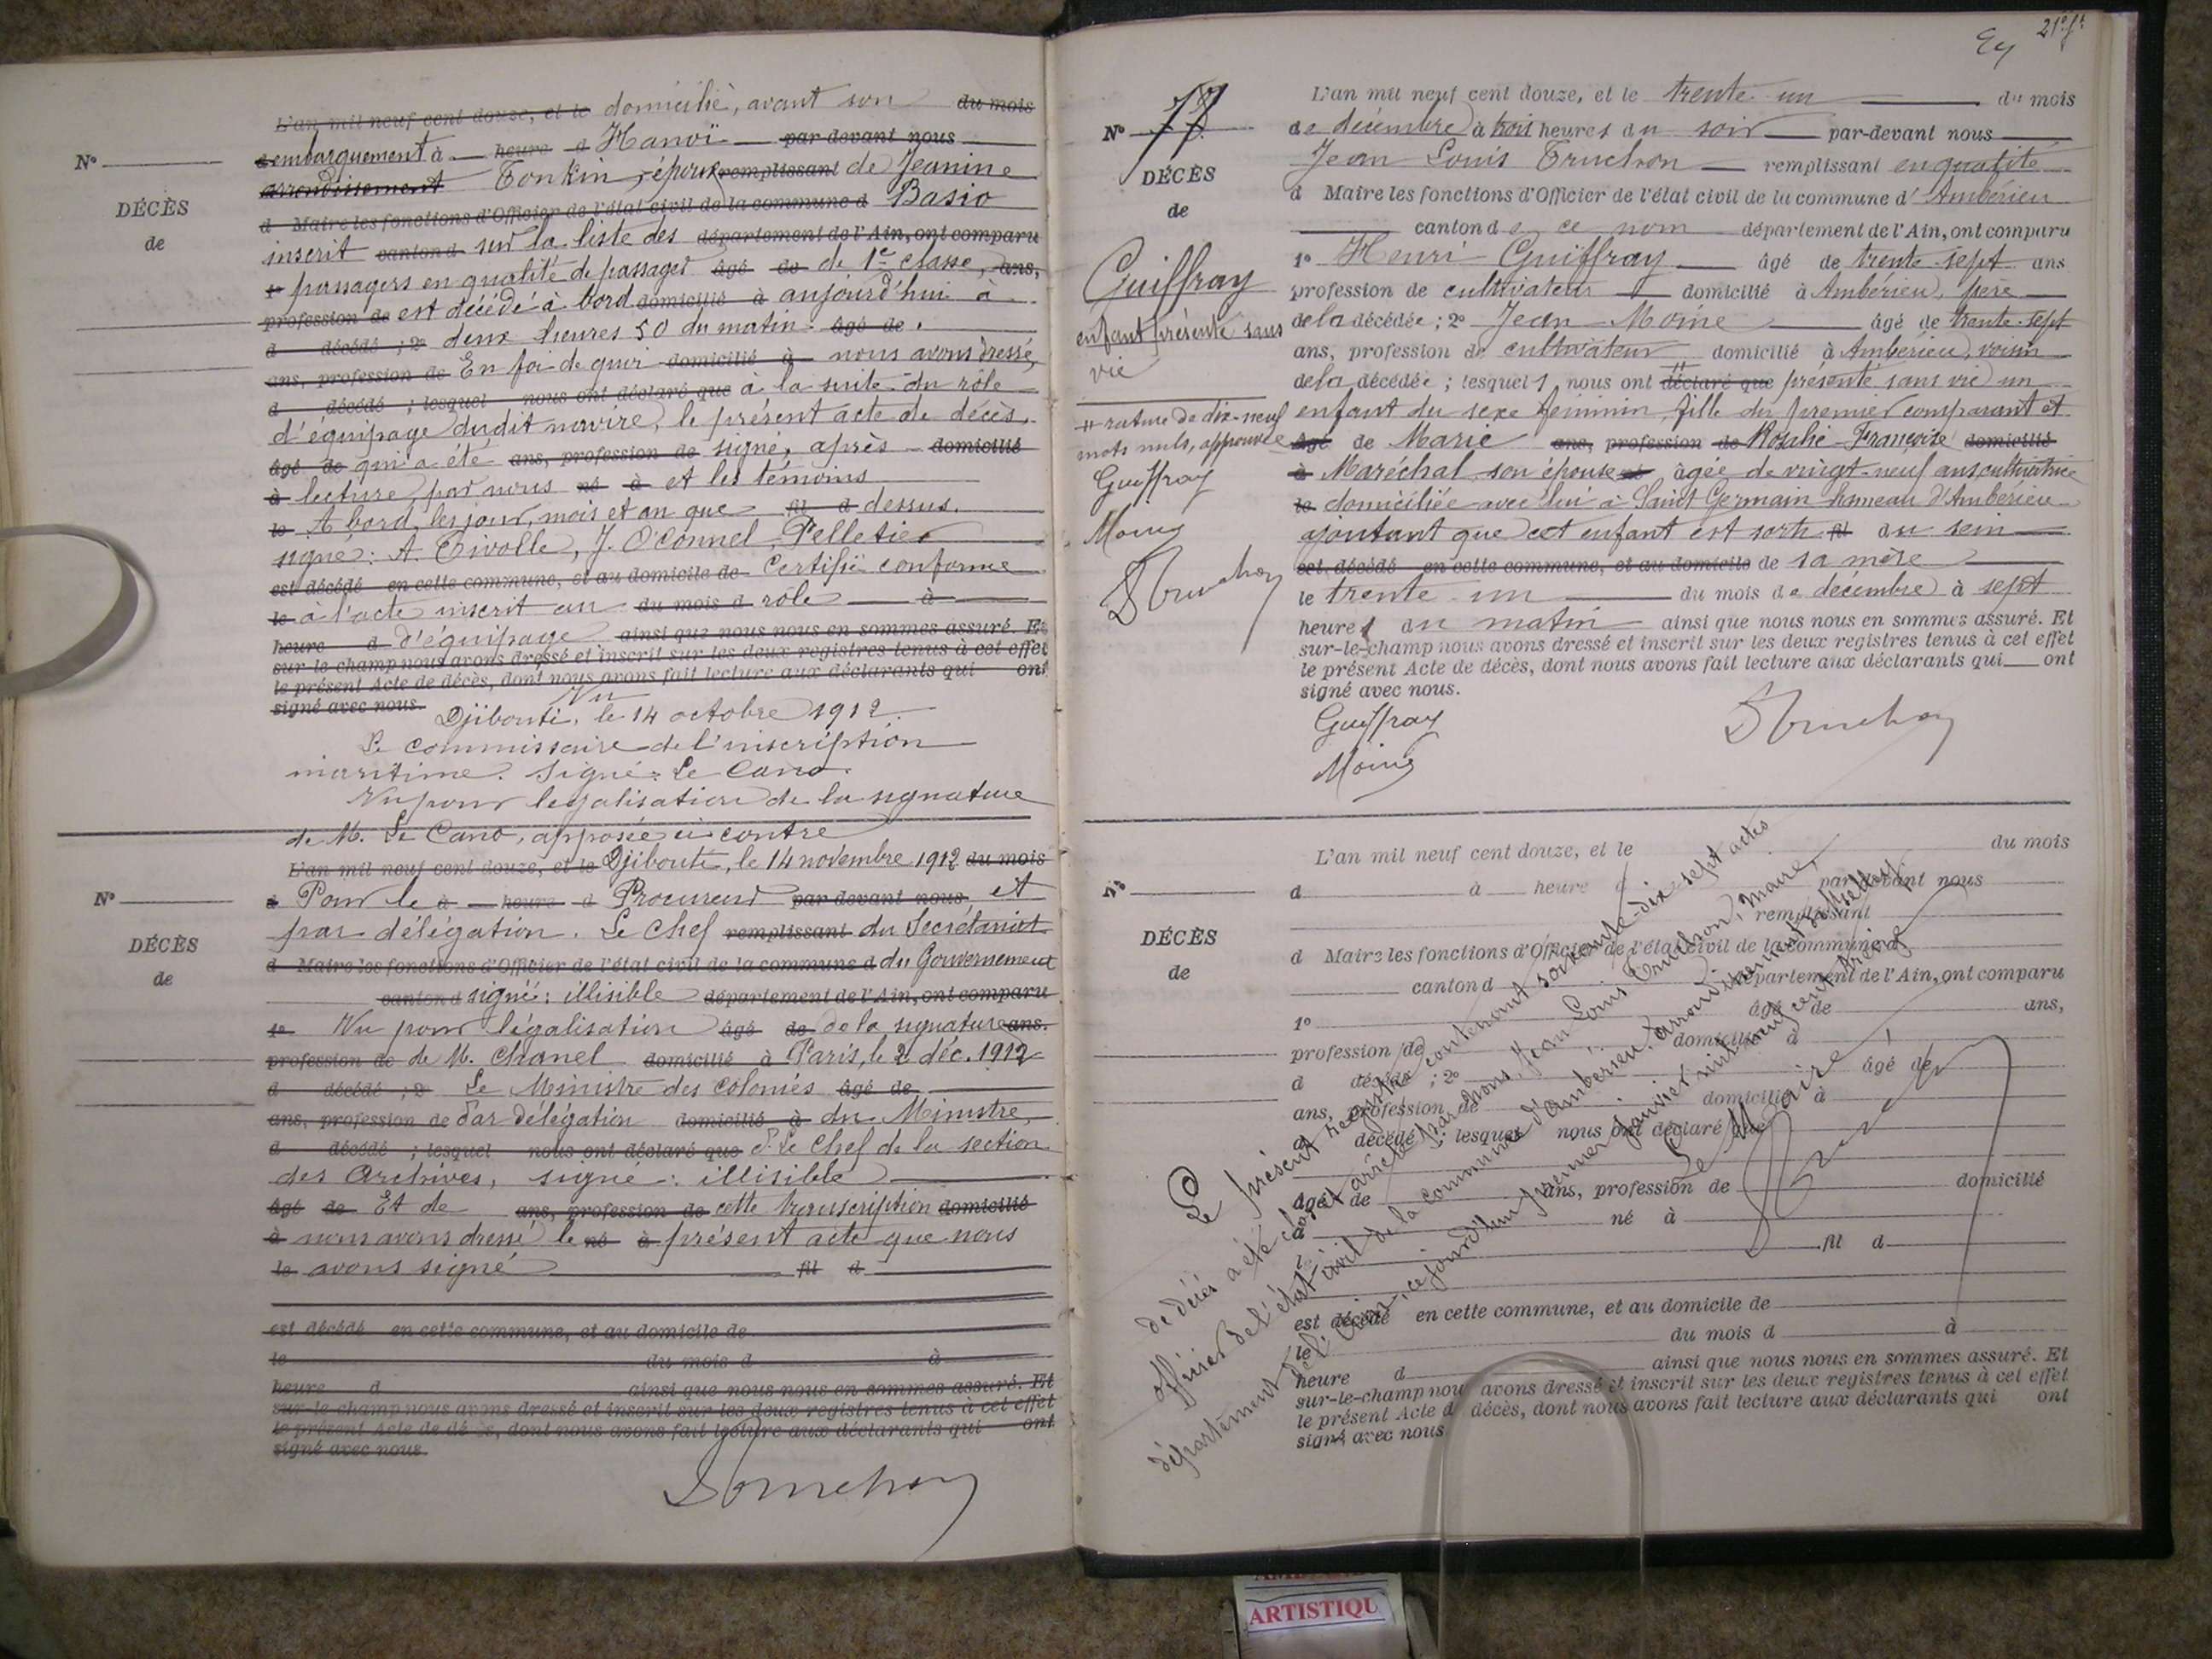 L'an mil neuf cent douze, et le domicilié, avant son du mois
embarquement à heure d Hanoï par-devant nous
arrondissement Tonkin, époux remplissant de Jeanine
d Maire les fonctions d'Officier de l'état civil de la commune d Basio
inscrit canton d sur la liste des département de l'Ain, ont comparu
1º passagers en qualité de passager âgé de de 1re classe, ans,
profession de est décédé à bord domicilié à aujourd'hui à
d décédé ; 2º deux heures 50 du matin. âgé de
ans, profession de En foi de quoi domicilié à nous avons dressé,
d décédé ; lesquel nous ont déclaré que à la suite du rôle
d'équipage dudit navire, le présent acte de décès,
âgé de qui a été ans, profession de signé, après domicilié
à lecture, par nous né à et les témoins
le A bord, les jour, mois et an que fil d dessus.
signé : A. Tivolle, J. O'Connel, Pelletier
est décédé en cette commune, et au domicile de Certifié conforme
le à l'acte inscrit au du mois d rôle à
heure d d'équipage ainsi que nous nous en sommes assuré. Et
sur-le-champ nous avons dressé et inscrit sur les deux registres tenus à cet effet
le présent Acte de décès, dont nous avons fait lecture aux déclarants qui ont
signé avec nous. Vu
Djibouti, le 14 octobre 1912.
Le commissaire de l'inscription
maritime. Signé : Le Cano.
Vu pour légalisation de la signature
de M. Le Cano, apposée ci contre
Nº
DÉCÈS
de
L'an mil neuf cent douze, et le Djibouti, le 14 novembre 1912 du mois
d Pour le à heure d Procureur par-devant nous et
par délégation. Le Chef remplissant du Secrétariat
d Maire les fonctions d'Officier de l'état civil de la commune d du Gouvernement
canton d signé : illisible département de l'Ain, ont comparu
1º Vu pour légalisation âgé de de la signature ans.
profession de de M. Chanel domicilié à Paris, le 2 déc. 1912
d décédé ; 2º Le Ministre des colonies âgé de
ans, profession de Par délégation domicilié à du Ministre,
d décédé ; lesquel nous ont déclaré que Le Chef de la section
des Archives, signé : illisible
âgé de Et de ans, profession de cette transcription domicilié
à nous avons dressé le né à présent acte que nous
le avons signé fil d
est décédé en cette commune, et au domicile de
le du mois d à
heure d ainsi que nous nous en sommes assuré. Et
sur-le-champ nous avons dressé et inscrit sur les deux registres tenus à cet effet
le présent Acte de décès, dont nous avons fait lecture aux déclarants qui ont
signé avec nous.
Nº
DÉCÈS
de
Nº 77
DÉCÈS
de
Guiffray
enfant présenté sans
vie
rature de dix-neuf
mots nuls, approuvée
Guiffray
Moine
Truchon
L'an mil neuf cent douze, et le trente un du mois
de décembre à trois heures du soir par-devant nous
Jean Louis Truchon remplissant en qualité
d Maire les fonctions d'Officier de l'état civil de la commune d'Ambérieu
canton de ce nom département de l'Ain, ont comparu
1º Henri Guiffray âgé de trente-sept ans
profession de cultivateur domicilié à Ambérieu, père
de la décédée ; 2º Jean Moine âgé de trente-sept
ans, profession de cultivateur domicilié à Ambérieu, voisin
de la décédée ; lesquels nous ont déclaré que présenté sans vie un
enfant du sexe féminin, fille du premier comparant et
âgé de Marie ans, profession de Rosalie-Françoise domicilié
à Maréchal son épouse né âgée de vingt-neuf ans, cultivatrice
le domiciliée avec lui à Saint Germain hameau d'Ambérieu
ajoutant que cet enfant est sorti fil du sein
est décédé en cette commune, et au domicile de sa mère
le trente-un du mois de décembre à sept
heures du matin ainsi que nous nous en sommes assuré. Et
sur-le-champ nous avons dressé et inscrit sur les deux registres tenus à cet effet
le présent Acte de décès, dont nous avons fait lecture aux déclarants qui ont
signé avec nous.
Guiffray
Moine
Truchon
Nº
DÉCÈS
de
L'an mil neuf cent douze, et le du mois
d à heure d par-devant nous
remplissant
d Maire les fonctions d'Officier de l'état civil de la commune d
canton d département de l'Ain, ont comparu
1º âgé de ans,
profession de domicilié à
d décédé ; 2º âgé de
ans, profession de domicilié à
d décédé ; lesquel nous ont déclaré que
âgé de ans, profession de domicilié
à né à
le fil d
est décédé en cette commune, et au domicile de
le du mois d à
heure d ainsi que nous nous en sommes assuré. Et
sur-le-champ nous avons dressé et inscrit sur les deux registres tenus à cet effet
le présent Acte de décès, dont nous avons fait lecture aux déclarants qui ont
signé avec nous
Le présent registre contenant soixante-dix-sept actes
de décès a été clos et arrêté par nous, Jean Louis Truchon, Maire,
officier de l'état civil de la commune d'Ambérieu, arrondissement de Belley,
département de l'Ain, ce jourd'hui premier janvier mil neuf cent treize
Le Maire
Truchon
ARTISTIQU